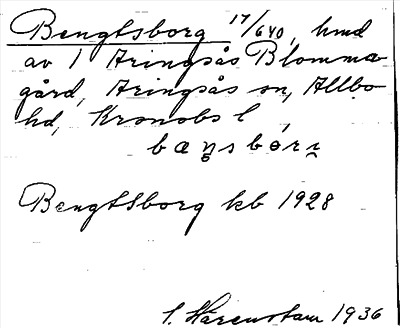 Bengtsborg 17/640, hmd
av 1 Aringsås Blomma
gård, Aringsås sn, Allbo
hd, Kronobs l,
Bengtsborg kb 1928
1936